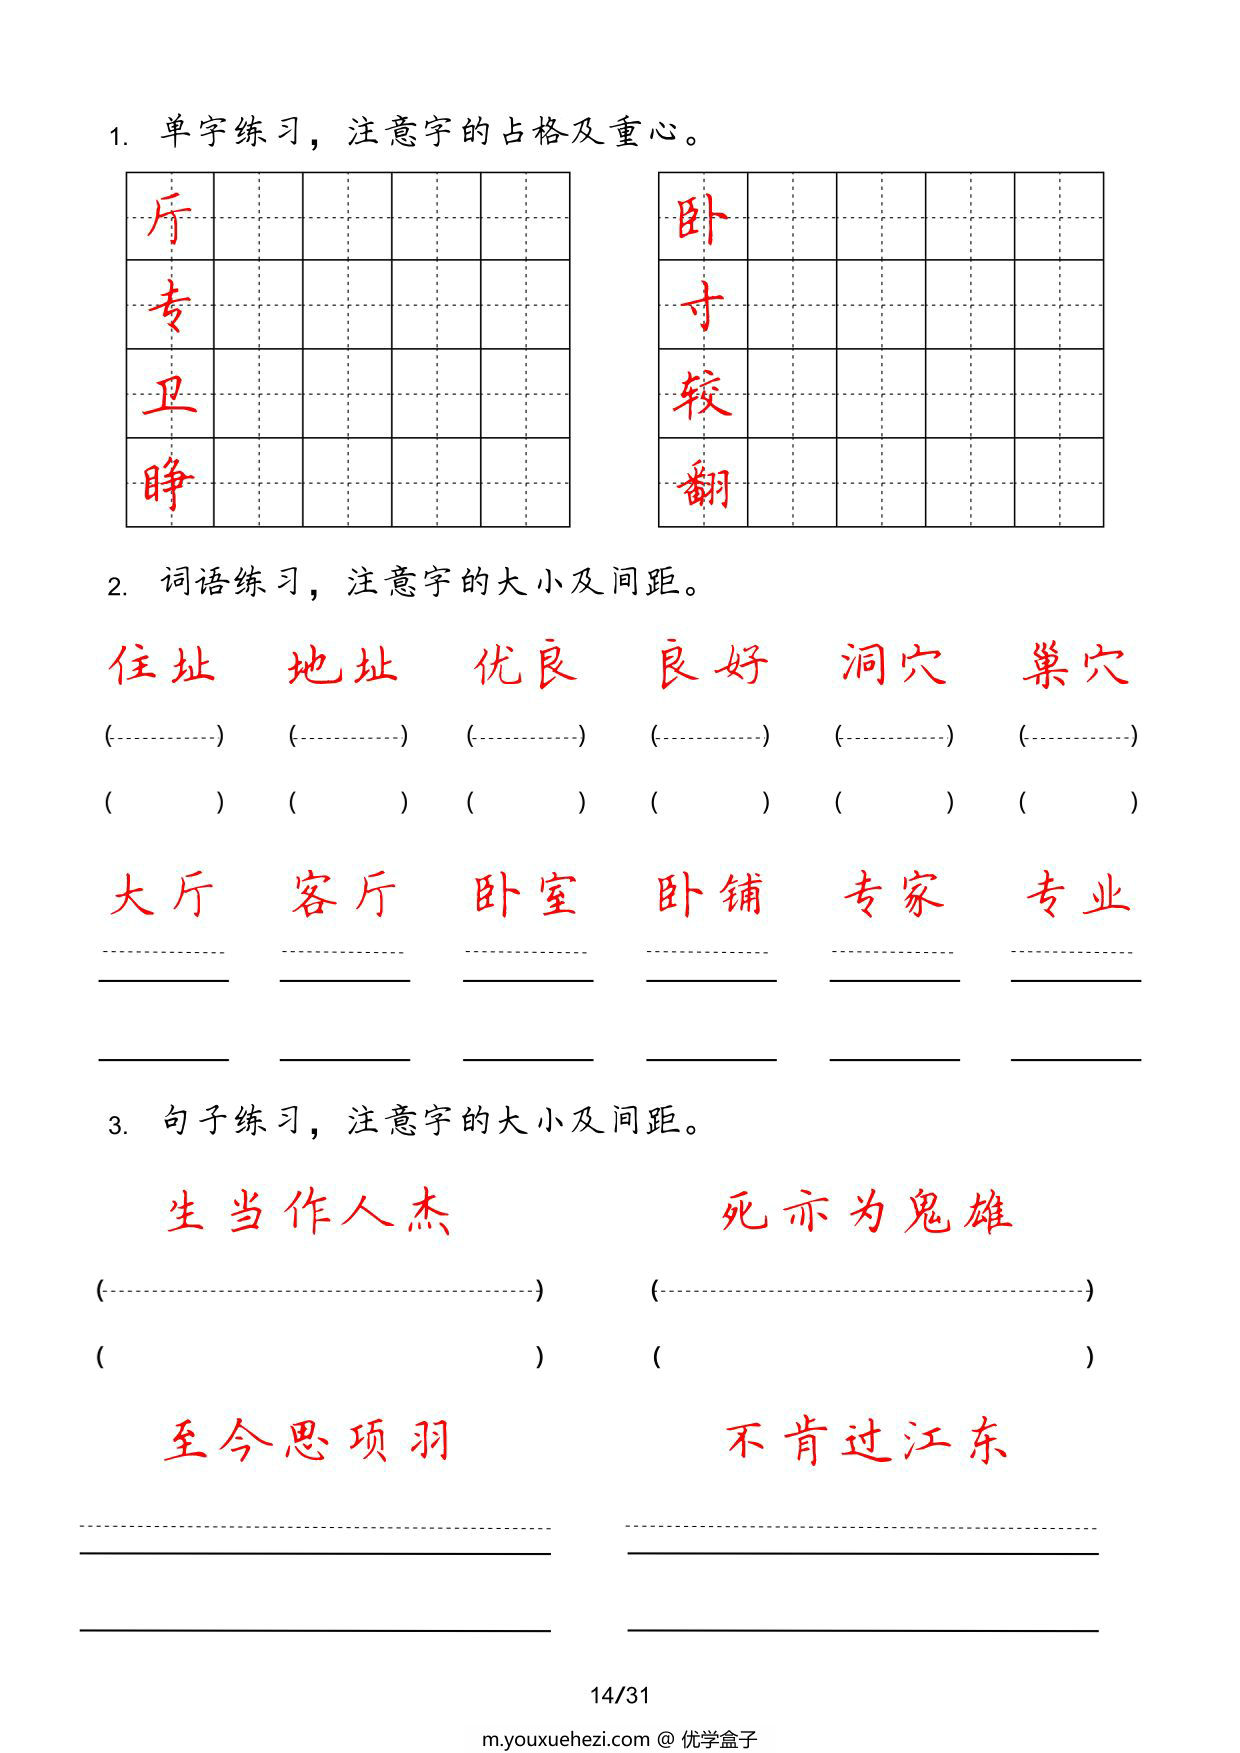 1. 单字练习，注意字的占格及重心。
厅 卧
专 寸
卫 较
睁 翻
2. 词语练习，注意字的大小及间距。
住址 地址 优良 良好 洞穴 巢穴
( ) ( ) ( ) ( ) ( ) ( )
( ) ( ) ( ) ( ) ( ) ( )
大厅 客厅 卧室 卧铺 专家 专业
3. 句子练习，注意字的大小及间距。
生当作人杰 死亦为鬼雄
( ) ( )
( ) ( )
至今思项羽 不肯过江东
14/31
m.youxuehezi.com @ 优学盒子